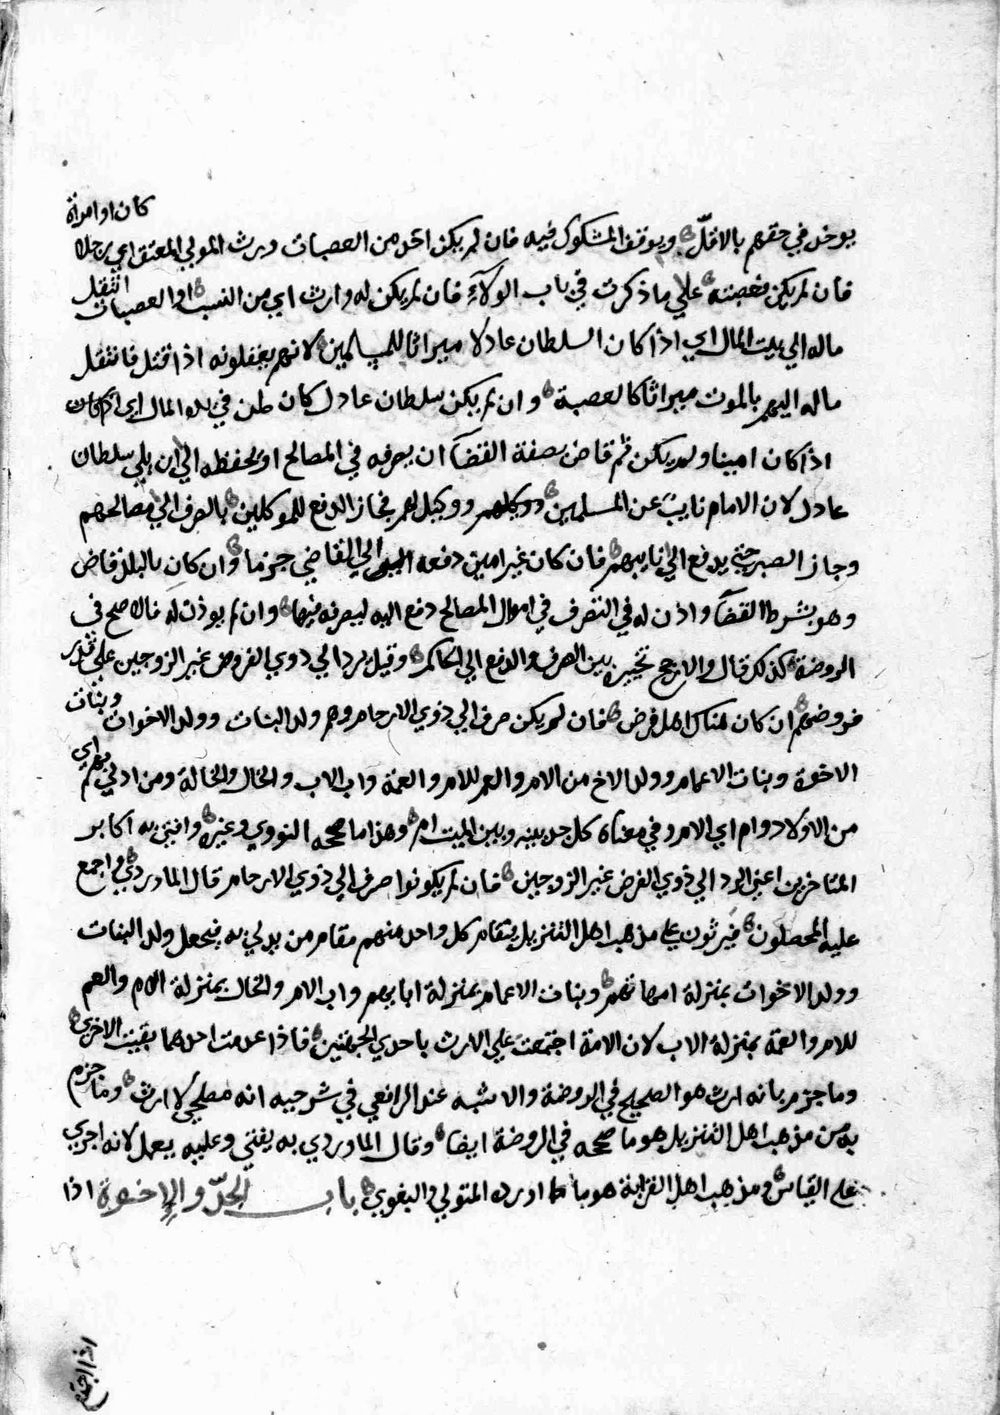 كان او امراة
يوخذ في حقهم بالاقل ويوقف المشكوك فيه فان لم يكن احد من العصبات ورث المولي المعتق اي رجلا
فان لم يكن فعصبته علي ما ذكرت في باب الولآء فان لم يكن له وارث اي من النسب او العصبات انتقل
ماله الي بيت المال اي اذا كان السلطان عادلا ميراثا للمسلمين لانهم يعقلونه اذا قتل فانتقل
ماله اليهم بالموت ميراثا كالعصبة وان لم يكن سلطان عادل كان لمن في يده المال اي
اذا كان امينا ولم يكن ثم قاض بصفة القضآ ان يصرفه في المصالح او يحفظه الي ان يلي سلطان
عادل لان الامام نايب عن المسلمين ووكيل لهم فجاز الدفع للموكلين بالصرف الي مصالحهم
وجاز الصبر حتي يدفع الي نايبهم فان كان غير امين دفعه الي القاضي جزما وان كان بالبلد قاض
وهو بشرط القضآ واذن له في التصرف في اموال المصالح دفع اليه ليصرفه فيها وان لم يوذن له فالاصح في
الروضة كذلك قال والارجح تخييره بين الصرف والدفع الي الحاكم وقيل يرد الي ذوي الفروض غير الزوجين علي قدر
فروضهم ان كان هناك اهل فرض فان لم يكن صرف الي ذوي الارحام وهم ولد البنات وولد الاخوات وبنات
الاخوة وبنات الاعمام وولد الاخ من الام والعم للام والعمة واب الاب والخال والخالة ومن ادلي بهم اي
من الاولاد وام اي الام وفي معناه كل جد بينه وبين الميت ام وهذا ما صححه النووي وغيره وافتي به اكابر
المتاخرين اعني الرد الي ذوي الفرض غير الزوجين فان لم يكونوا صرف الي ذوي الارحام قال الماوردي واجمع
عليه المحصلون فيرثون علي مذهب اهل التنزيل يقام كل واحد منهم مقام من يدلي به فيجعل ولد البنات
وولد الاخوات بمنزلة امهاتهم وبنات الاعمام بمنزلة ابايهم واب الام والخال بمنزلة الام والعم
للام والعمة بمنزلة الاب لان الامة اجتمعت علي الارث باحدي الجهتين فاذا عدمت احدهما بقيت الاخري
وما جزم بانه ارث هو الصحيح في الروضة والاشبه عند الرافعي في شرحيه انه مصلحي لا ارث وما جزم
به من مذهب اهل التنزيل هو ما صححه في الروضة ايضا وقال الماوردي به يفتي وعليه يعمل لانه اجري
علي القياس ومذهب اهل القرابة هو ما اورده المتولي والبغوي باب الجدّ والإخوة اذا
اذا اجتمع